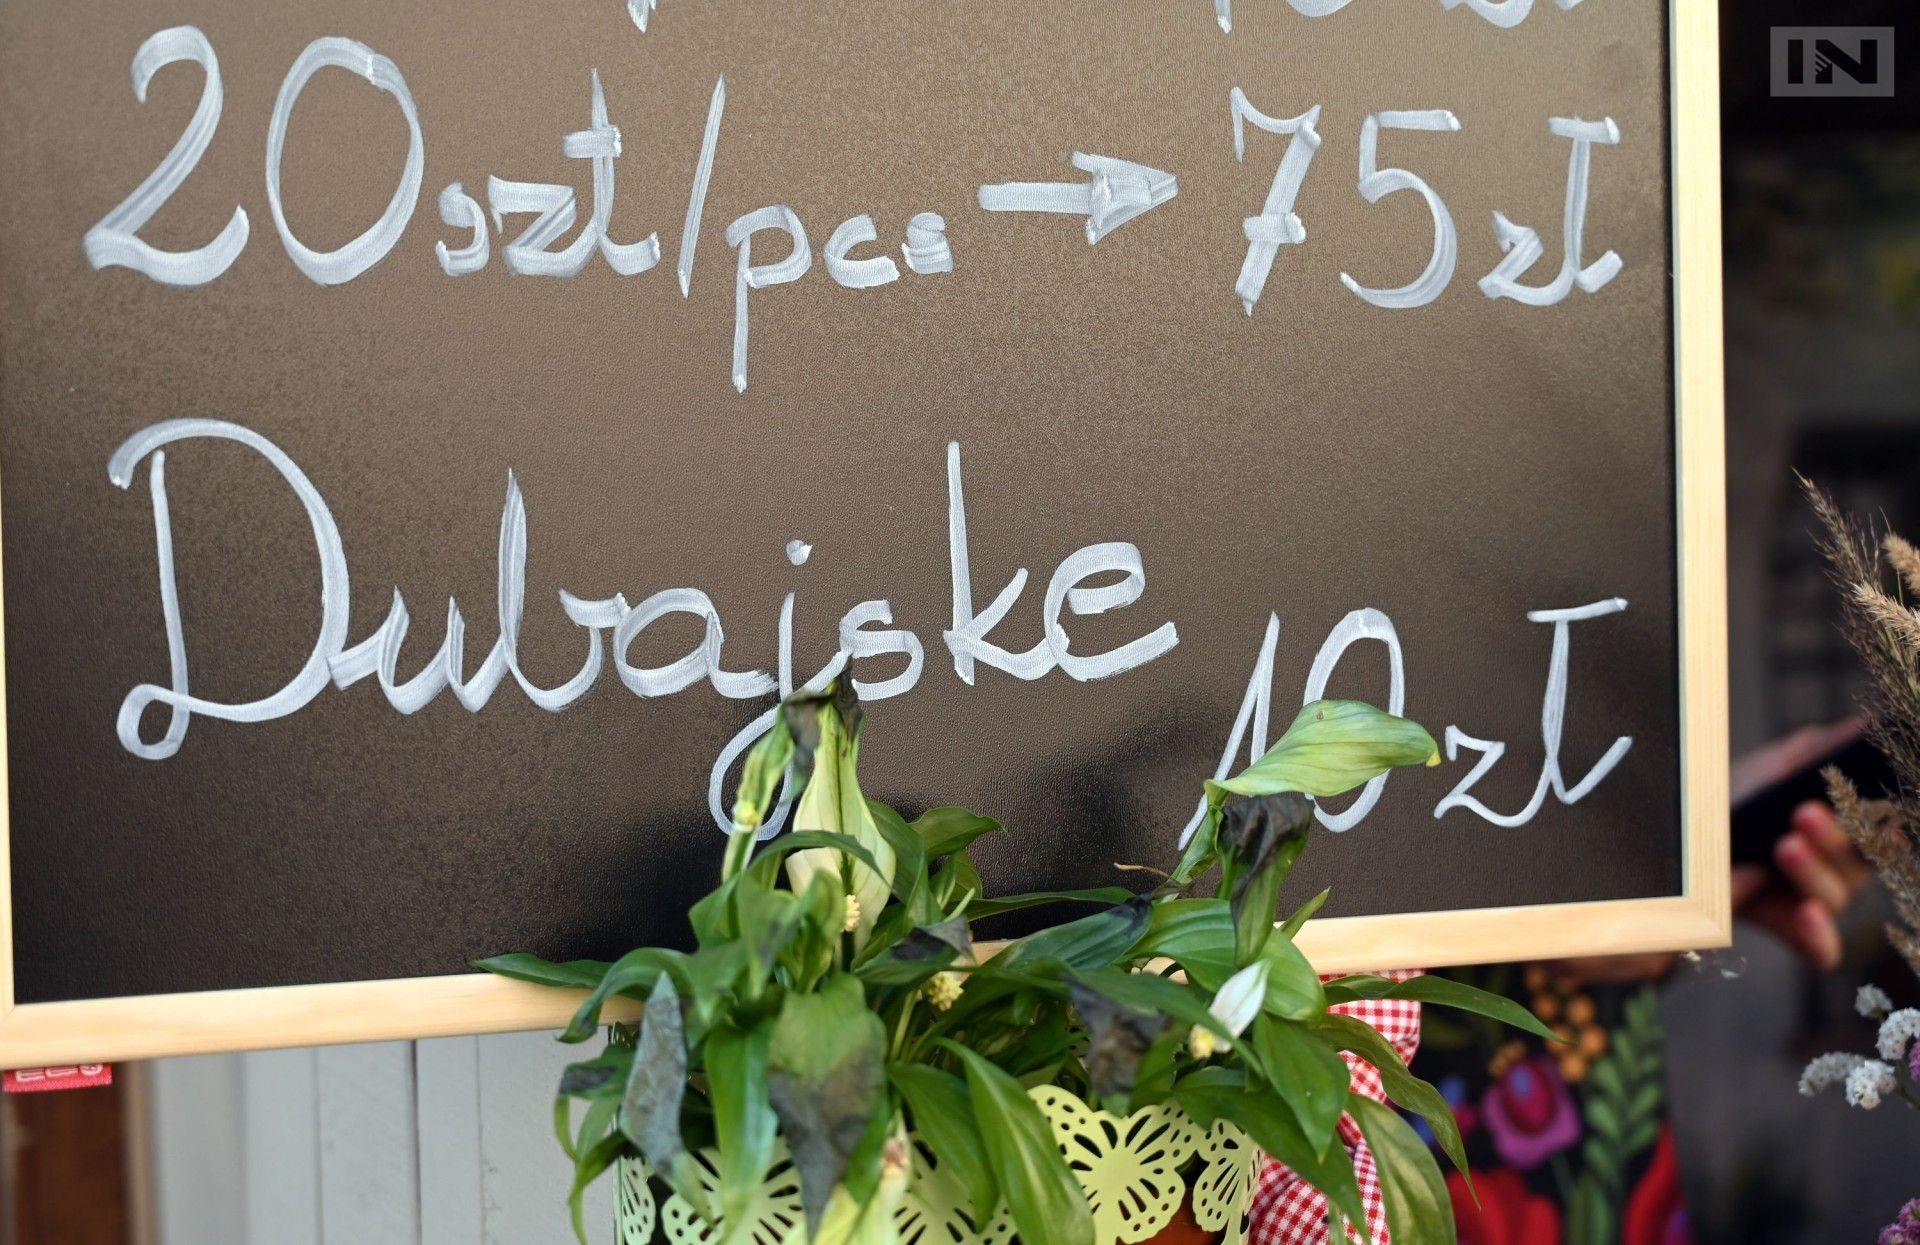 IN
20szt/pcs → 75zł
Dubajskie 10zł